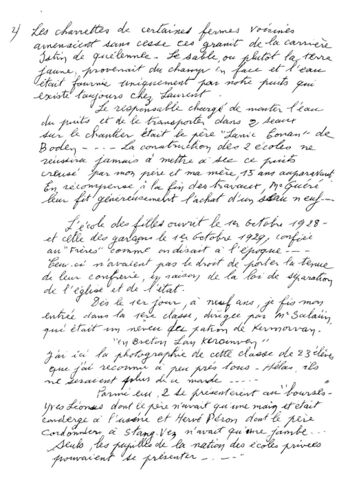 2) Les charrettes de certaines fermes voisines
amenaient sans cesse ces granit de la carrière
Istin de quélennec. Le sable, ou plutôt la terre
jaune, provenait du champ en face et l'eau
était fournie uniquement par notre puits qui
existe toujours chez Laurent.
Le responsable chargé de monter l'eau
du puits et de le transporter dans 2 seaux
sur le chantier était le père "Lanic Conan" de
Boden - - - . La construction des 2 écoles ne
réussira jamais à mettre à sec ce puits
creusé par mon père et ma mère, 15 ans auparavant.
En récompense, à la fin des travaux, Mr Guéré
leur fit généreusement l'achat d'un seau neuf --
L'école des filles ouvrit le 1er octobre 1928 -
et celle des garçons le 1er octobre 1929, confiée
au "Frères" comme on disait à l'époque - - - -
Ceux-ci n'avaient pas le droit de porter la tenue
de leur confrérie, en raison de la loi de séparation
de l'église et de l'état.
Dès le 1er jour, à neuf ans, je fis mon
entrée dans la 1ère classe, dirigée par Mr Salaün,
qui était un neveu du patron de Kermorvan.
"en Breton Lan
J'ai ici la photographie de cette classe de 23 élèves
que j'ai reconnu à peu près tous - Hélas, ils
ne seraient plus de ce monde - - - - -
Parmi eux, 2 se présentèrent au "bourses -
Yves Lionnais dont le père n'avait qu'une main et était
concierge à l'usine et Hervé Péron dont le père
cordonnier à Stang-Ven n'avait qu'une jambe - -
Seuls, les pupilles de la nation des écoles privées
pouvaient se présenter - - - - - "